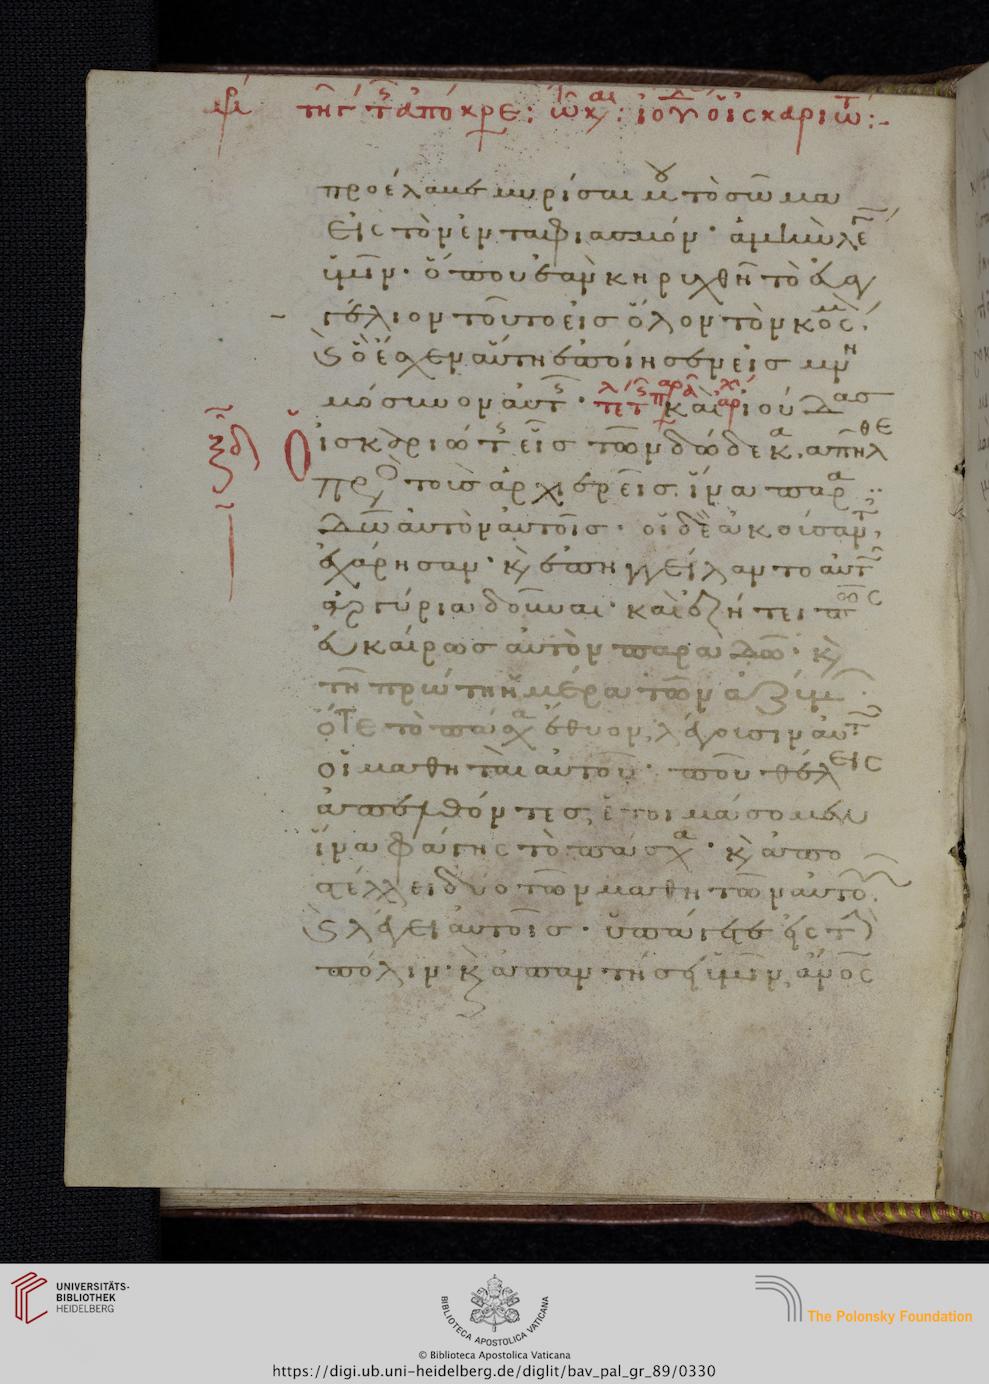 τῆ γ τ ἀπόκρε: : ἰού ὁ ἰσκαριώτ:
προέλαβε μυρίσαι μου τὸ σῶμα
εἰς τὸν ἐνταφιασμόν· ἀμὴν λέ
ὑμῖν· ὅπου ἐὰν κηρυχθῆ τὸ εὐαγ
γέλιον τοῦτο εἰς ὅλον τὸν κόσμ
ὃ ἔσχεν αὕτη ἐποίησεν εἰς μνη
μόσυνον αὐτ· καὶ ἰούδας
ὁ ἰσκαριώτ εἷς τῶν δώδεκα, ἀπῆλθε
πρὸς τοὺς ἀρχιερεῖς. ἵνα παρα
δῶ αὐτὸν αὐτοῖς· οἱ δὲ ἀκούσαντ
ἐχάρησαν· κ ἐπηγγείλαντο αὐτ
ἀργύρια δοῦναι· καὶ ἐζήτει πῶς
εὐκαίρως αὐτὸν παραδῶ· κ
τῆ πρώτη ἡμέρα τῶν ἀζύμ
ὅτε τὸ πάσχα ἔθυον, λέγουσιν αὐτ
οἱ μαθηταὶ αὐτοῦ· ποῦ θέλεις
ἀπελθόντες, ἑτοιμάσομεν
ἵνα φάγης τὸ πάσχα· κ ἀπο
στέλλει δύο τῶν μαθητῶν αὐτο
λέγει αὐτοῖς· ὑπάγετε εἰς τ
πόλιν· κ ἀπαντήσει ὑμῖν ἄνος
UNIVERSITÄTS-
BIBLIOTHEK
HEIDELBERG
BIBLIOTECA APOSTOLICA VATICANA
© Biblioteca Apostolica Vaticana
The Polonsky Foundation
https://digi.ub.uni-heidelberg.de/diglit/bav_pal_gr_89/0330